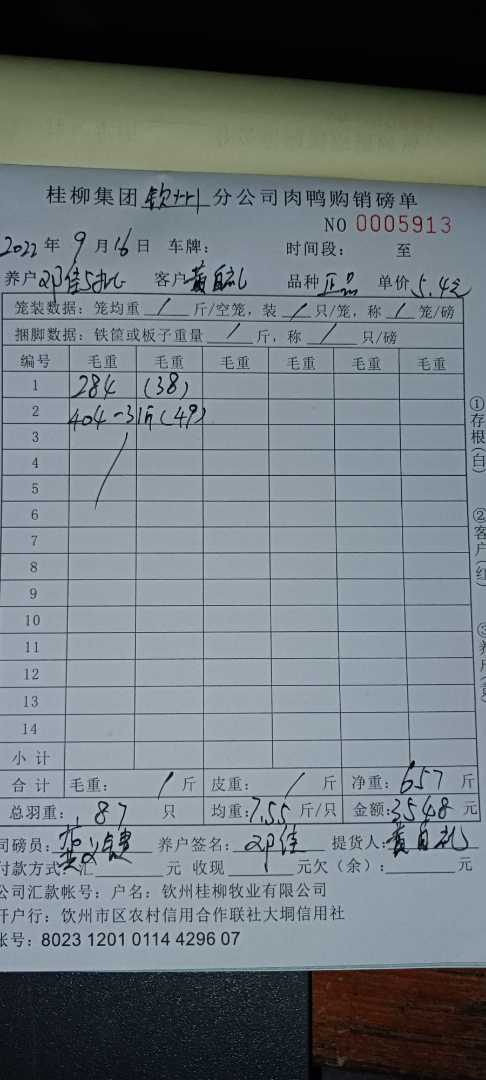 桂柳集团 钦州 分公司肉鸭购销磅单
NO 0005913
2022 年 9 月 16 日 车牌: 时间段: 至
养户 邓佳 客户 黄自礼 品种 正品 单价 5.4元
笼装数据: 笼均重 / 斤/空笼, 装 / 只/笼, 称 / 笼/磅
捆脚数据: 铁筐或板子重量 / 斤, 称 / 只/磅
编号 毛重 毛重 毛重 毛重 毛重 毛重
1 284 (38)
2 404-31斤(49)
3
4
5
6
7
8
9
10
11
12
13
14
小计
合计 毛重: / 斤 皮重: / 斤 净重: 657 斤
总羽重: 87 只 均重: 7.55 斤/只 金额: 3548 元
司磅员: 养户签名: 邓佳 提货人: 黄自礼
付款方式: 汇 元 收现 元欠(余): 元
公司汇款帐号: 户名: 钦州桂柳牧业有限公司
开户行: 钦州市区农村信用合作联社大垌信用社
帐号: 8023 1201 0114 4296 07
①存根(白)
②客户(红)
③养户